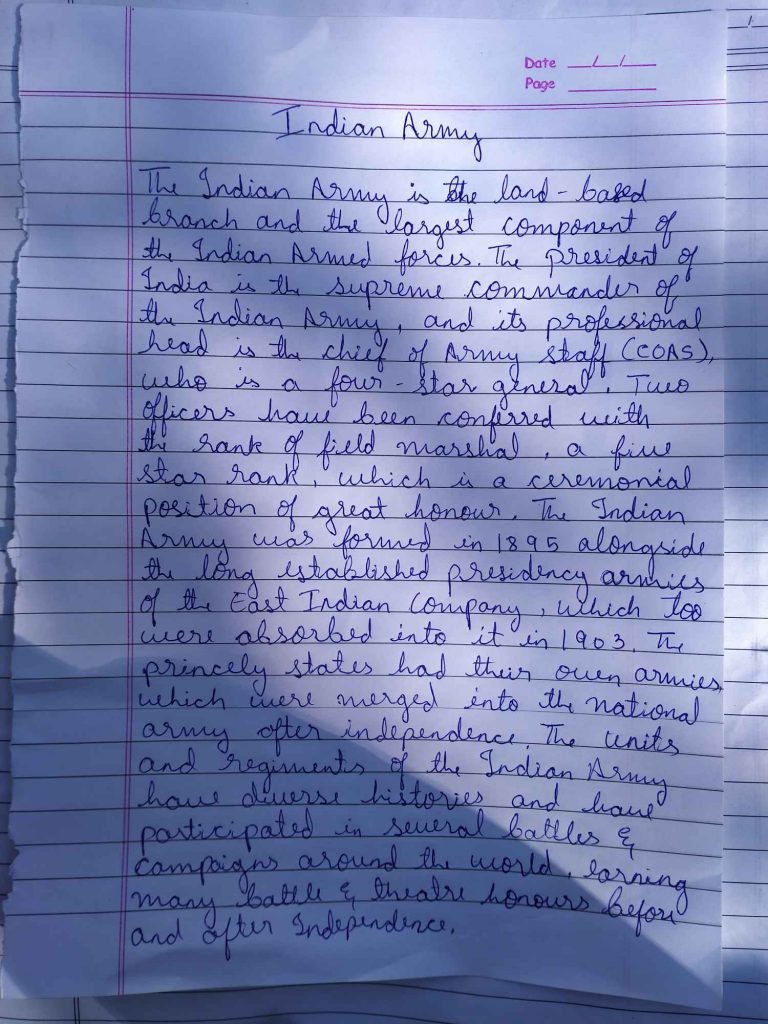 Date __/__/__
Page ______
Indian Army
The Indian Army is the land-based
branch and the largest component of
the Indian Armed forces. The president of
India is the supreme commander of
the Indian Army, and its professional
head is the chief of Army staff (COAS),
who is a four-star general. Two
officers have been conferred with
the rank of field marshal, a five
star rank, which is a ceremonial
position of great honour. The Indian
Army was formed in 1895 alongside
the long established presidency armies
of the East Indian Company, which too
were absorbed into it in 1903. The
princely states had their own armies,
which were merged into the national
army after independence. The units
and regiments of the Indian Army
have diverse histories and have
participated in several battles &
campaigns around the world, earning
many battle & theatre honours before
and after Independence.